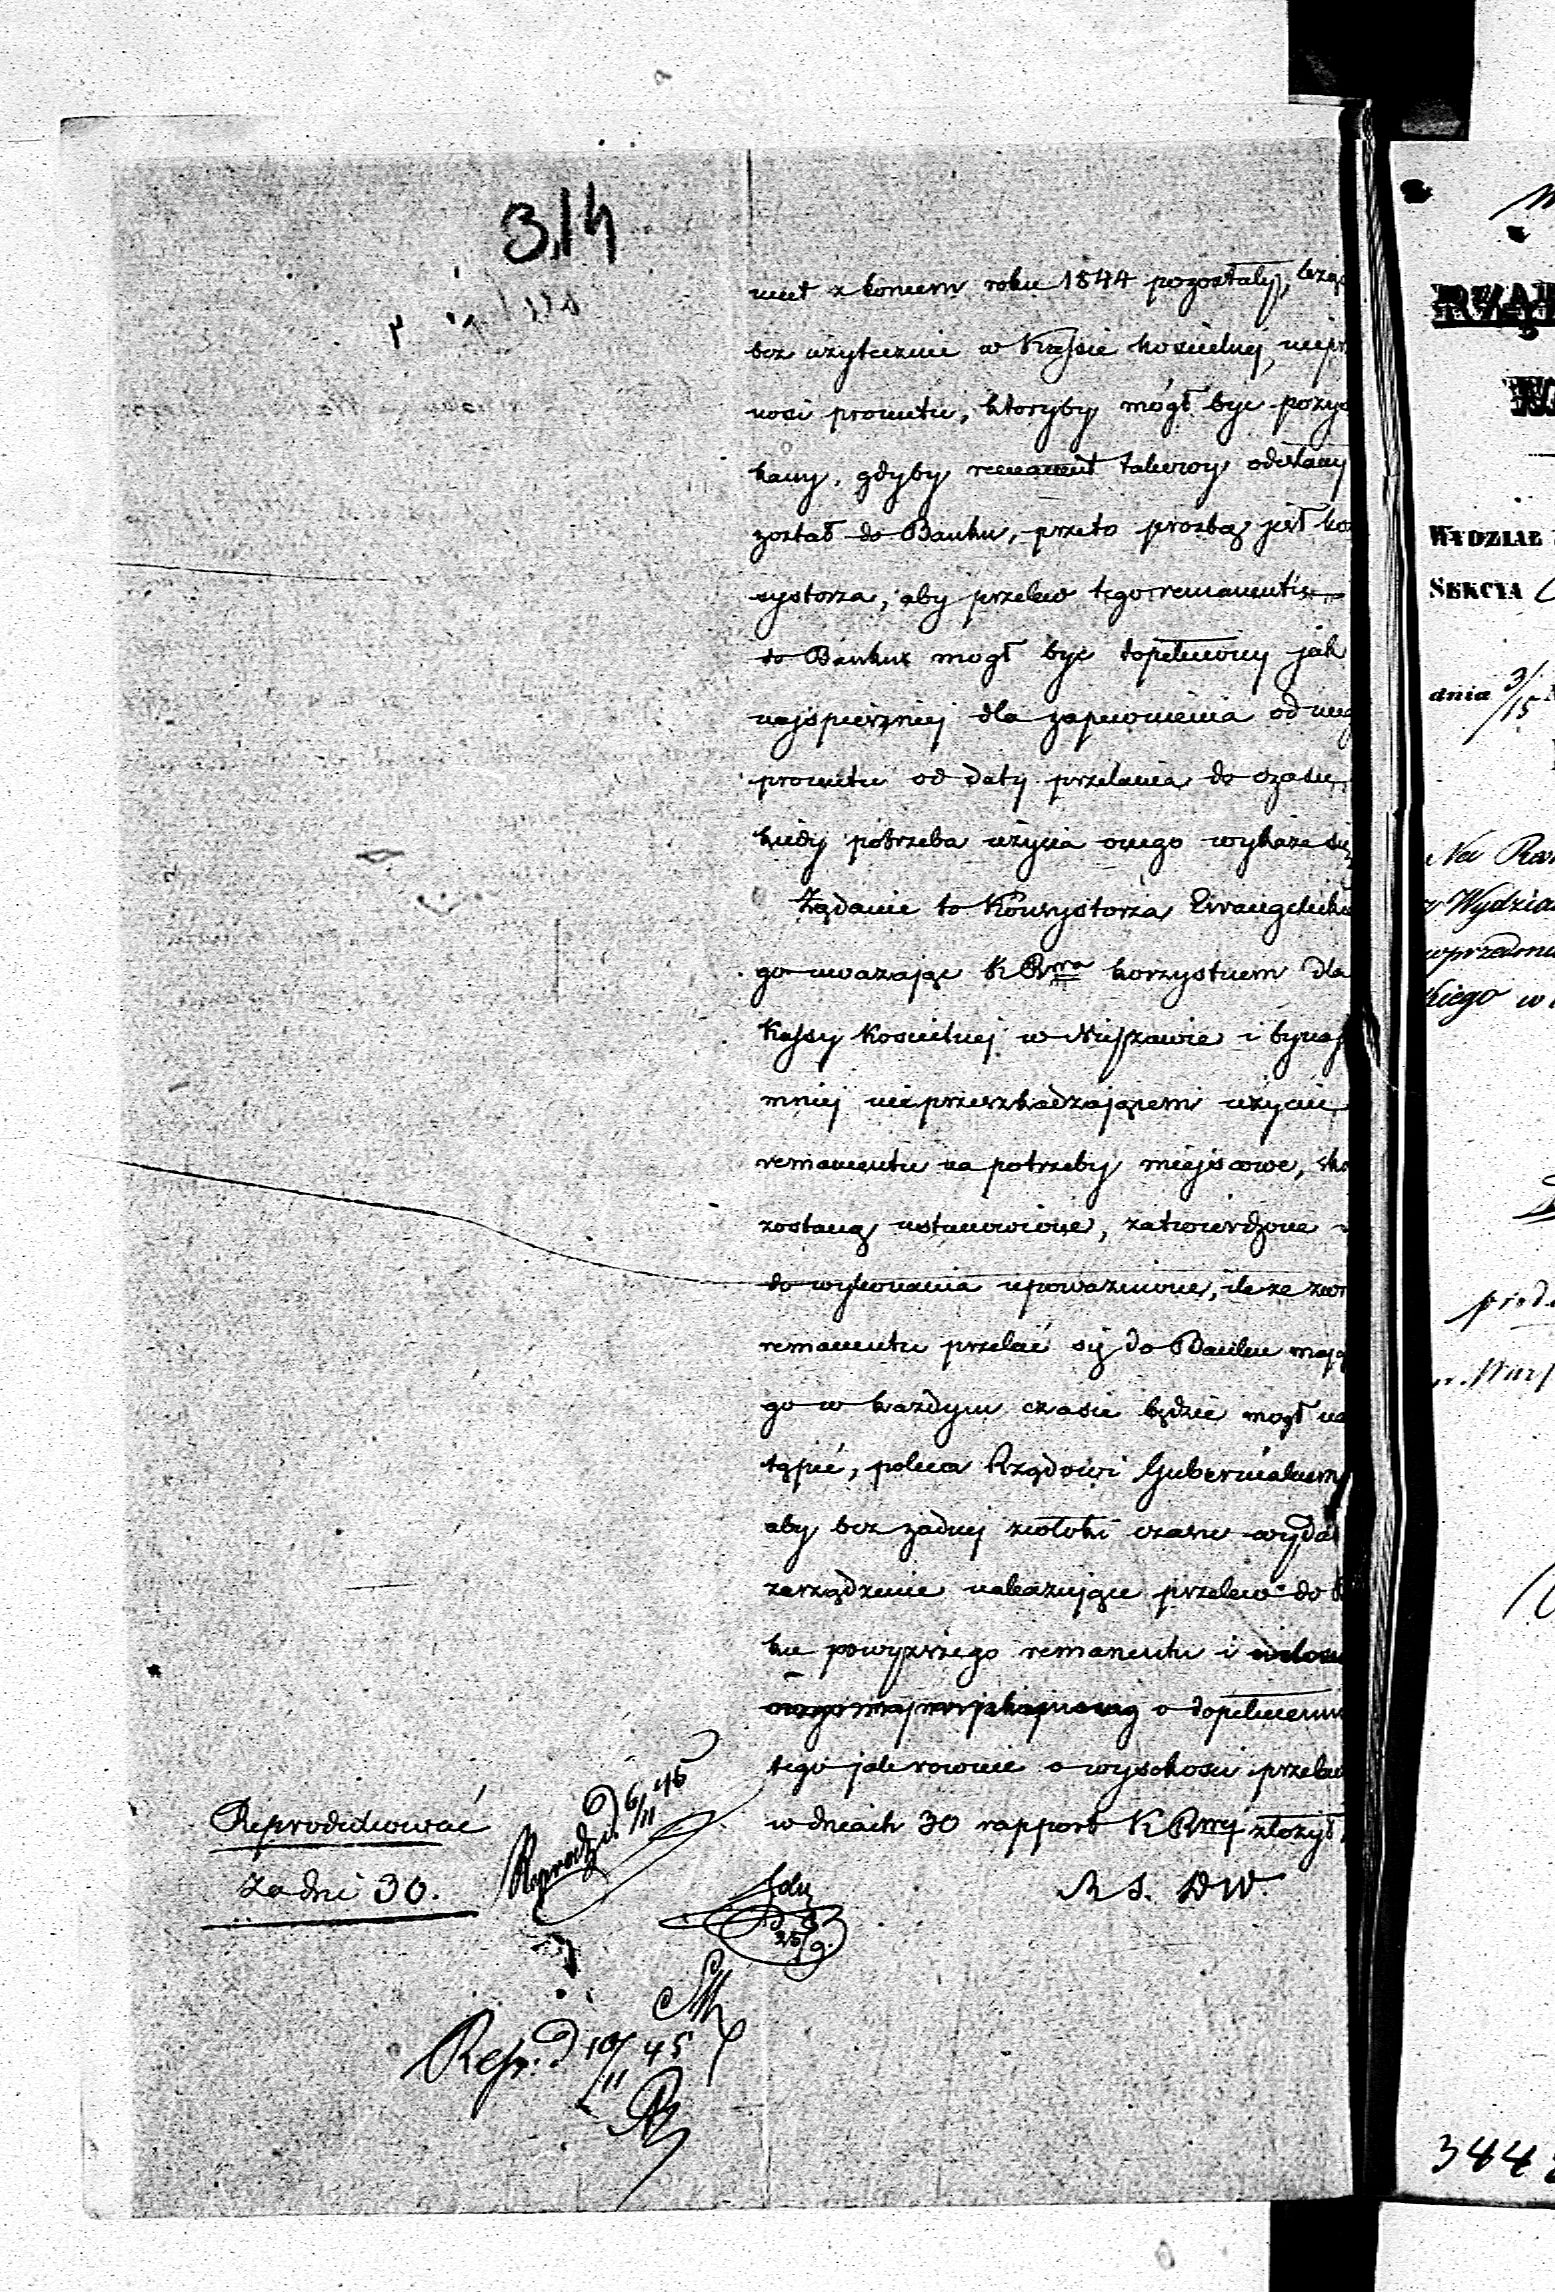 314
ment z koncem roku 1844 pozostały, leżąc
bez użytecznie w Kassie kościelnej, niepr
nosi procentu, ktoryby mógł być pozys
kany, gdyby remanent takowy odesłany
został do Banku, przeto prozbą jest ko
systorza, aby przelew tego remanentu
do Banku mogł być dopełniony jak
najspieszniej dla zapewnienia od nieg
procentu od daty przelania do czasu,
kiedy potrzeba użycia onego wykaże się
Żądanie to Konsystorza Ewangelicki
go uważając K Rna korzystnem dla
Kassy Kościelnej w Nieszawie i bynaj
mniej nieprzeszkadzającem użyciu
remanentu na potrzeby miejscowe, sko
zostaną ustanowione, zatwierdzone
do wykonania upoważnione, ile że zwr
remanentu przelać się do Banku mają
go w każdym czasie będzie mogł nas
tąpić, poleca Rządowi Gubernialnem
aby bez żadnej zwłoki czasu wydał
zarządzenie nakazujące przelew do B
ku powyższego remanentu i
o dopełnieniu
tego jak rownie o wysokości przelew
w dniach 30 rapport K Rnej złożył
Reprodukować
za dni 30.
Reprod. d 6/11 45
25/9.
M S. D W.
Rep. d 10/11 45
RZĄD
WYDZIAŁ
SEKCYA
dnia 3/15
Na Ra
Wydzia
wprzedmi
kiego w
344